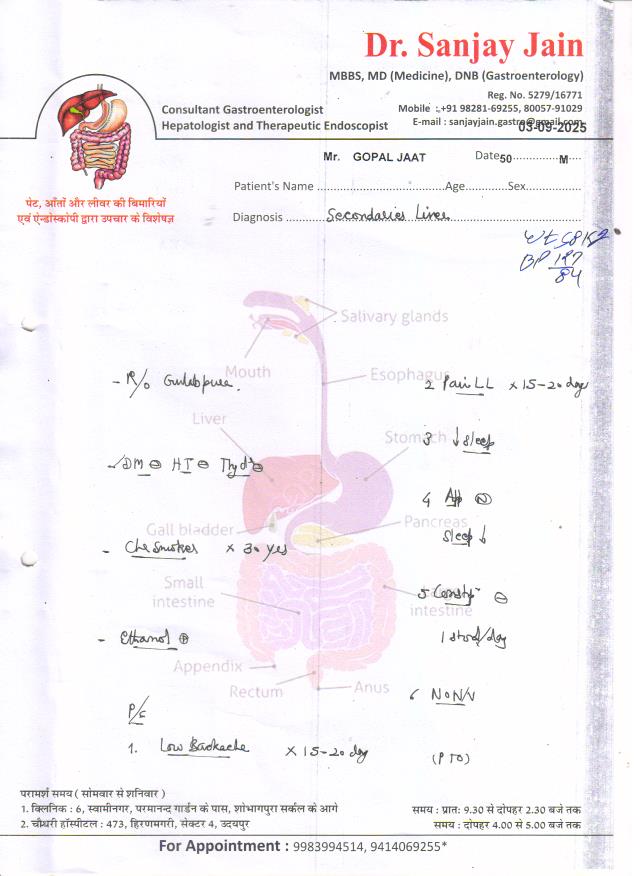 Dr. Sanjay Jain
MBBS, MD (Medicine), DNB (Gastroenterology)
Reg. No. 5279/16771
Mobile : +91 98281-69255, 80057-91029
E-mail : sanjayjain.gastro@gmail.com
03-09-2025
Consultant Gastroenterologist
Hepatologist and Therapeutic Endoscopist
पेट, आँतों और लीवर की बिमारियों
एवं एंन्डोस्कोपी द्वारा उपचार के विशेषज्ञ
Mr. GOPAL JAAT Date 50 M
Patient's Name Age Sex
Diagnosis Secondaries Liver
Wt 58 K
BP 127
84
Salivary glands
Mouth
Esophagus
Liver
Stomach
Gall bladder
Pancreas
Small
intestine
intestine
Appendix
Rectum
Anus
- R/o
DM ⊖ HT ⊖ Thyd ⊖
- Ch Smoker x 30 yes
- Ethanol ⊕
P/c
1. Low Backache x 15-20 day
2 Pain LL x 15-20 days
3 ↓ sleep
4 App Ⓝ
Sleep ↓
5 Constp ⊖
1 stool/day
6 NO N/V
(PTO)
परामर्श समय ( सोमवार से शनिवार )
1. क्लिनिक : 6, स्वामीनगर, परमानन्द गार्डन के पास, शोभागपुरा सर्कल के आगे
समय : प्रातः 9.30 से दोपहर 2.30 बजे तक
2. चौधरी हॉस्पीटल : 473, हिरणमगरी, सेक्टर 4, उदयपुर
समय : दोपहर 4.00 से 5.00 बजे तक
For Appointment : 9983994514, 9414069255*